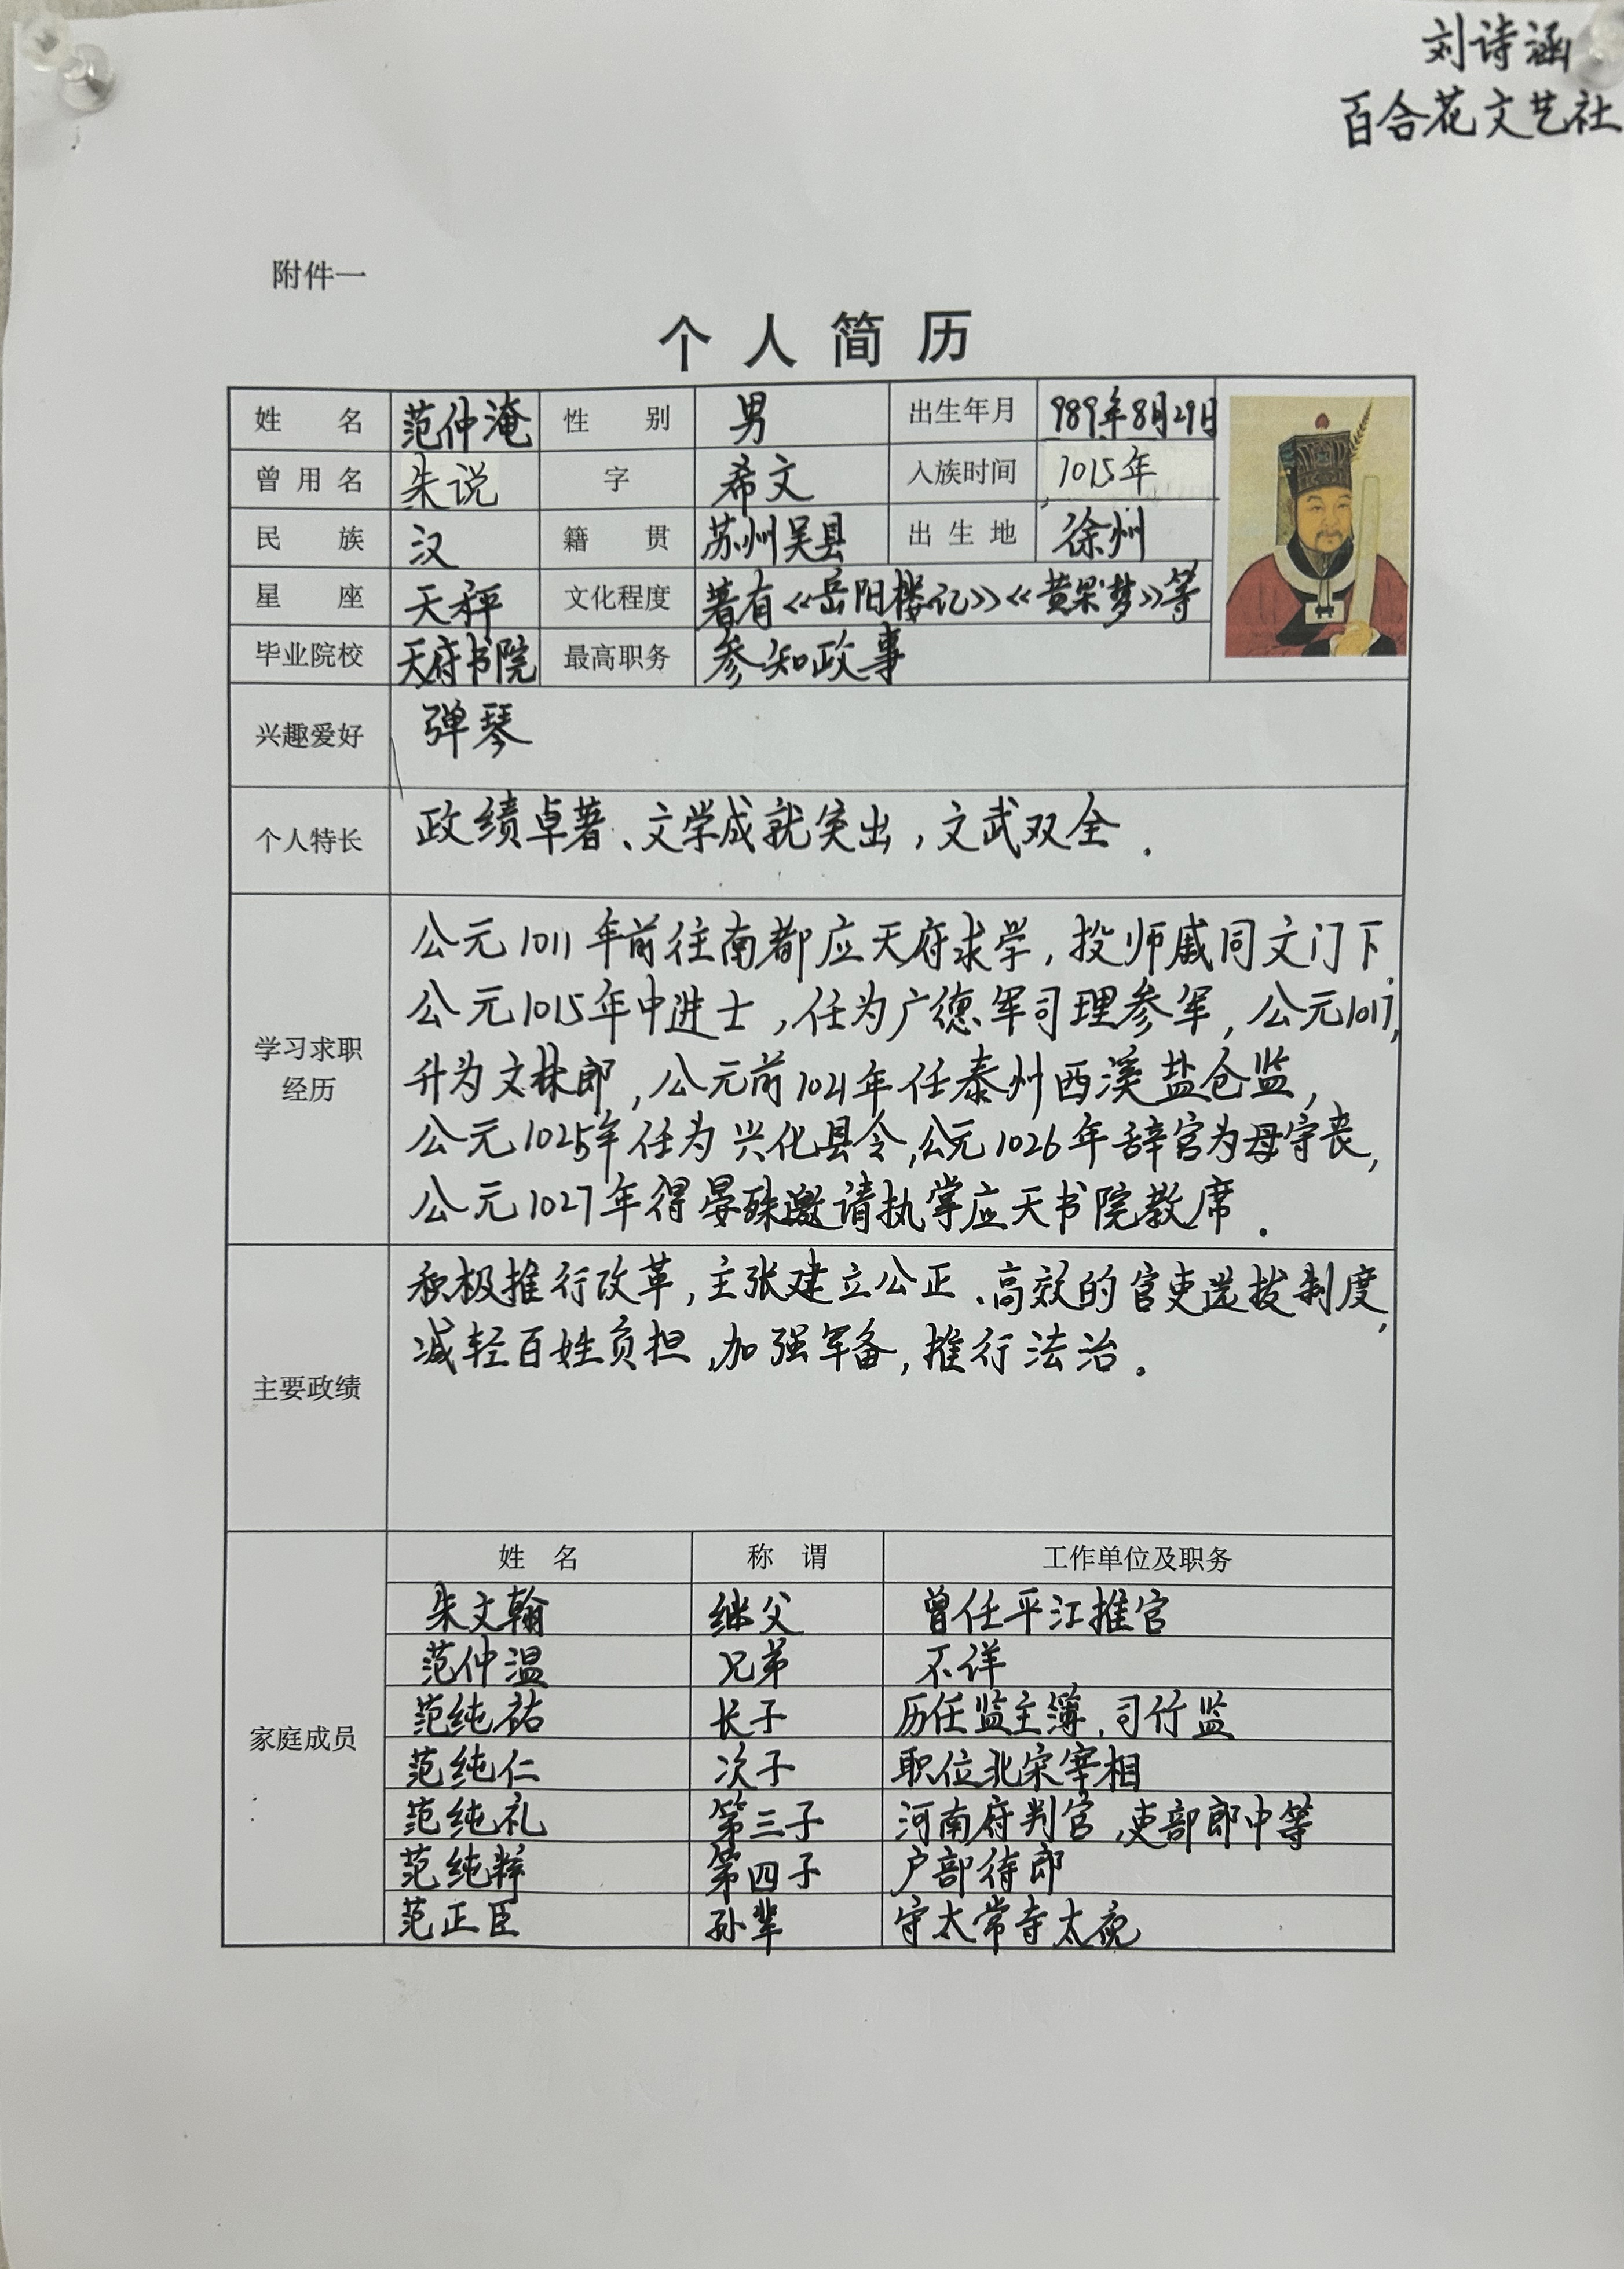 刘诗涵
百合花文艺社
附件一
个人简历
姓名 范仲淹 性别 男 出生年月 989年8月29日
曾用名 朱说 字 希文 入族时间 1015年
民族 汉 籍贯 苏州吴县 出生地 徐州
星座 天秤 文化程度 著有《岳阳楼记》《黄粱梦》等
毕业院校 天府书院 最高职务 参知政事
兴趣爱好 弹琴
个人特长 政绩卓著、文学成就突出，文武双全.
学习求职
经历
公元1011年前往南都应天府求学，投师戚同文门下.
公元1015年中进士，任为广德军司理参军，公元1017,
升为文林郎，公元前1021年任泰州西溪盐仓监，
公元1025年任为兴化县令，公元1026年辞官为母守丧，
公元1027年得晏殊邀请执掌应天书院教席.
主要政绩
积极推行改革，主张建立公正、高效的官吏选拔制度，
减轻百姓负担，加强军备，推行法治.
家庭成员
姓名 称谓 工作单位及职务
朱文翰 继父 曾任平江推官
范仲温 兄弟 不详
范纯祐 长子 历任监主簿，司竹监
范纯仁 次子 职位北宋宰相
范纯礼 第三子 河南府判官，吏部郎中等
范纯粹 第四子 户部待郎
范正臣 孙辈 守太常寺太祝